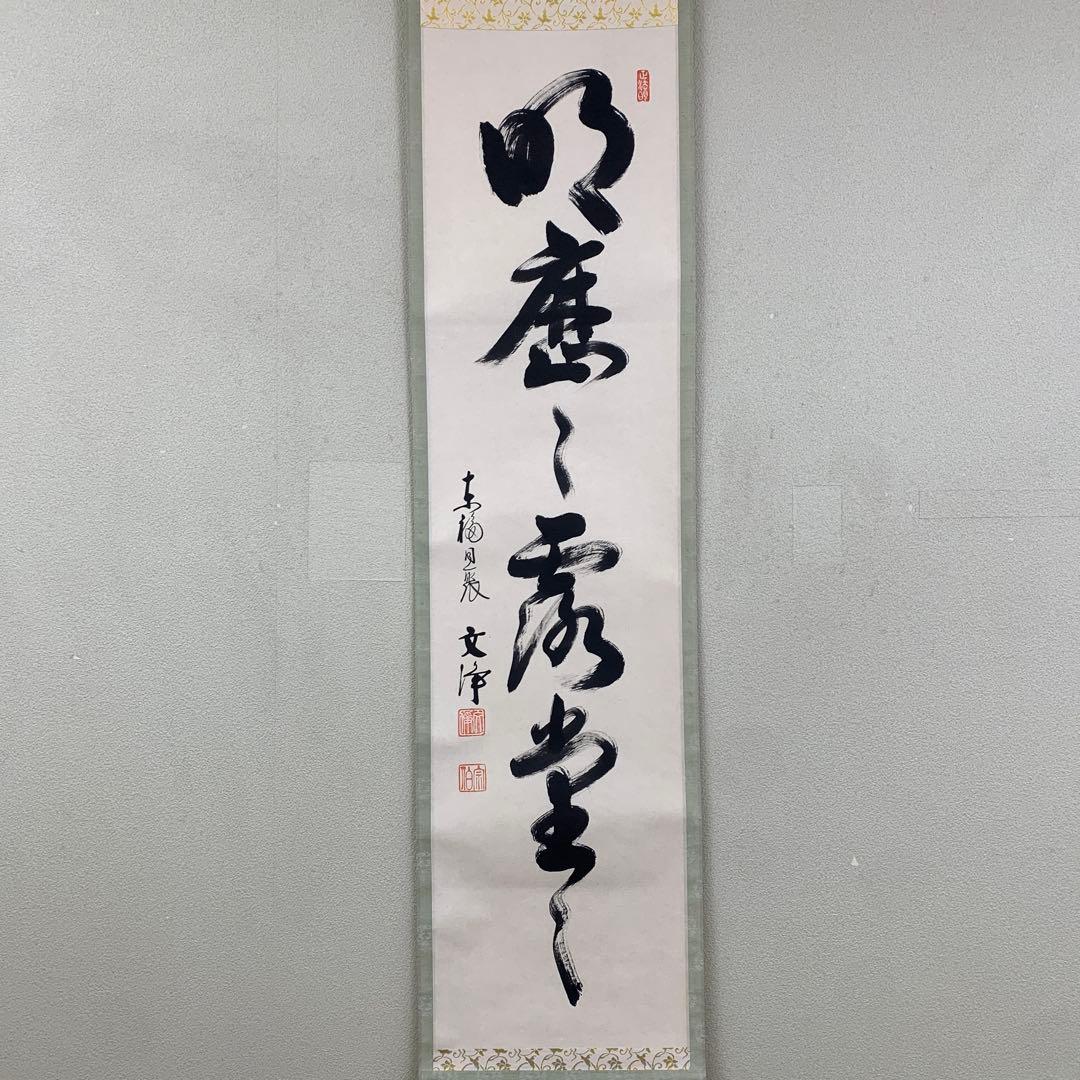 明歴々露堂々
東福同聚 文浄